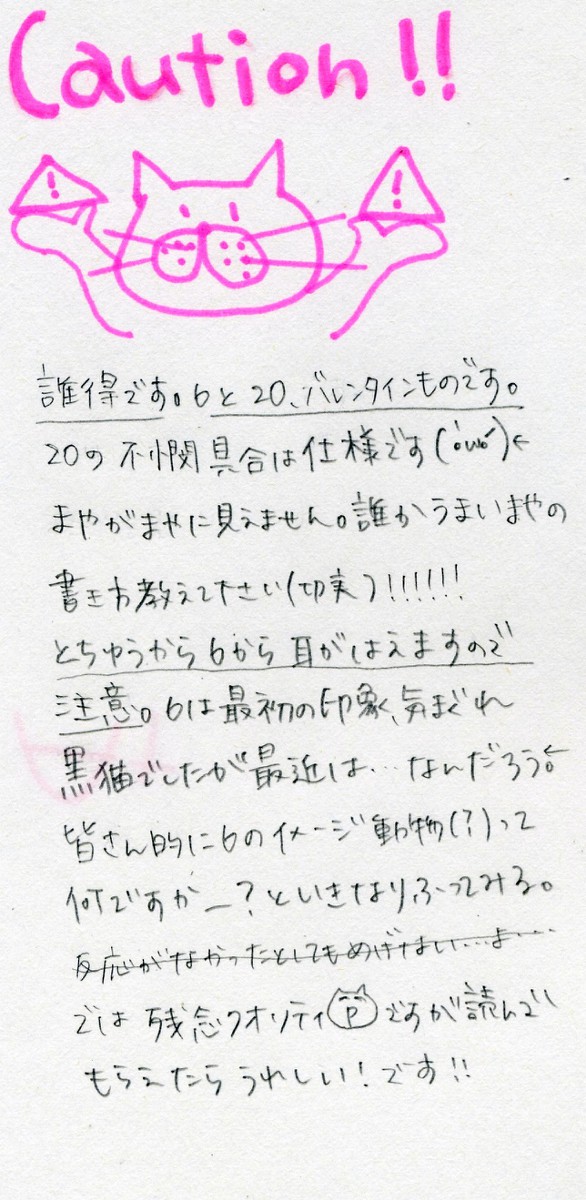 Caution!!
! !
誰得です。6と20、バレンタインものです。
20の不憫具合は仕様です(´・ω・`)←
まやがまやに見えません。誰かうまいまやの
書き方教えて下さい(切実)!!!!!!
とちゅうから6から耳がはえますので
注意。6は最初の印象、気まぐれ
黒猫でしたが最近は…なんだろう。←
皆さん的に6のイメージ動物(?)って
何ですかー?といきなりふってみる。
反応がなかったとしてもめげない…よ…
では残念クオリティですが読んで
もらえたらうれしい!です!!